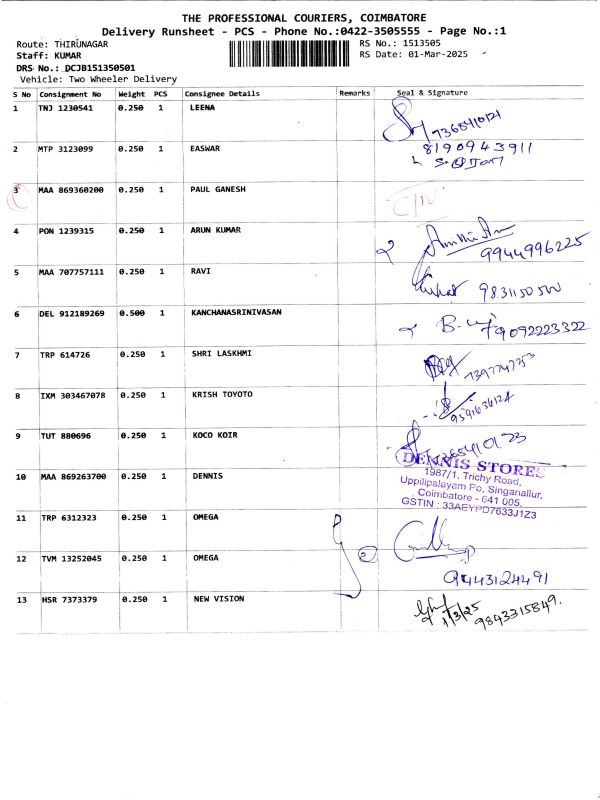 THE PROFESSIONAL COURIERS, COIMBATORE
Delivery Runsheet - PCS - Phone No.:0422-3505555 - Page No.:1
Route: THIRUNAGAR RS No.: 1513505
Staff: KUMAR RS Date: 01-Mar-2025
DRS No.: DCJB151350501
Vehicle: Two Wheeler Delivery
S No Consignment No Weight PCS Consignee Details Remarks Seal & Signature
1 TNJ 1230541 0.250 1 LEENA
2 MTP 3123099 0.250 1 EASWAR 8190943911
3 MAA 869360200 0.250 1 PAUL GANESH
4 PON 1239315 0.250 1 ARUN KUMAR 9944996225
5 MAA 707757111 0.250 1 RAVI
6 DEL 912189269 0.500 1 KANCHANASRINIVASAN 9092223322
7 TRP 614726 0.250 1 SHRI LASKHMI
8 IXM 303467078 0.250 1 KRISH TOYOTO
9 TUT 880696 0.250 1 KOCO KOIR
10 MAA 869263700 0.250 1 DENNIS
DENNIS STORES
1987/1, Trichy Road,
Uppilipalayam Po, Singanallur,
Coimbatore - 641 005.
GSTIN : 33AEYPD7633J1Z3
11 TRP 6312323 0.250 1 OMEGA
12 TVM 13252045 0.250 1 OMEGA 9443124491
13 HSR 7373379 0.250 1 NEW VISION
1/3/25 9843315849.